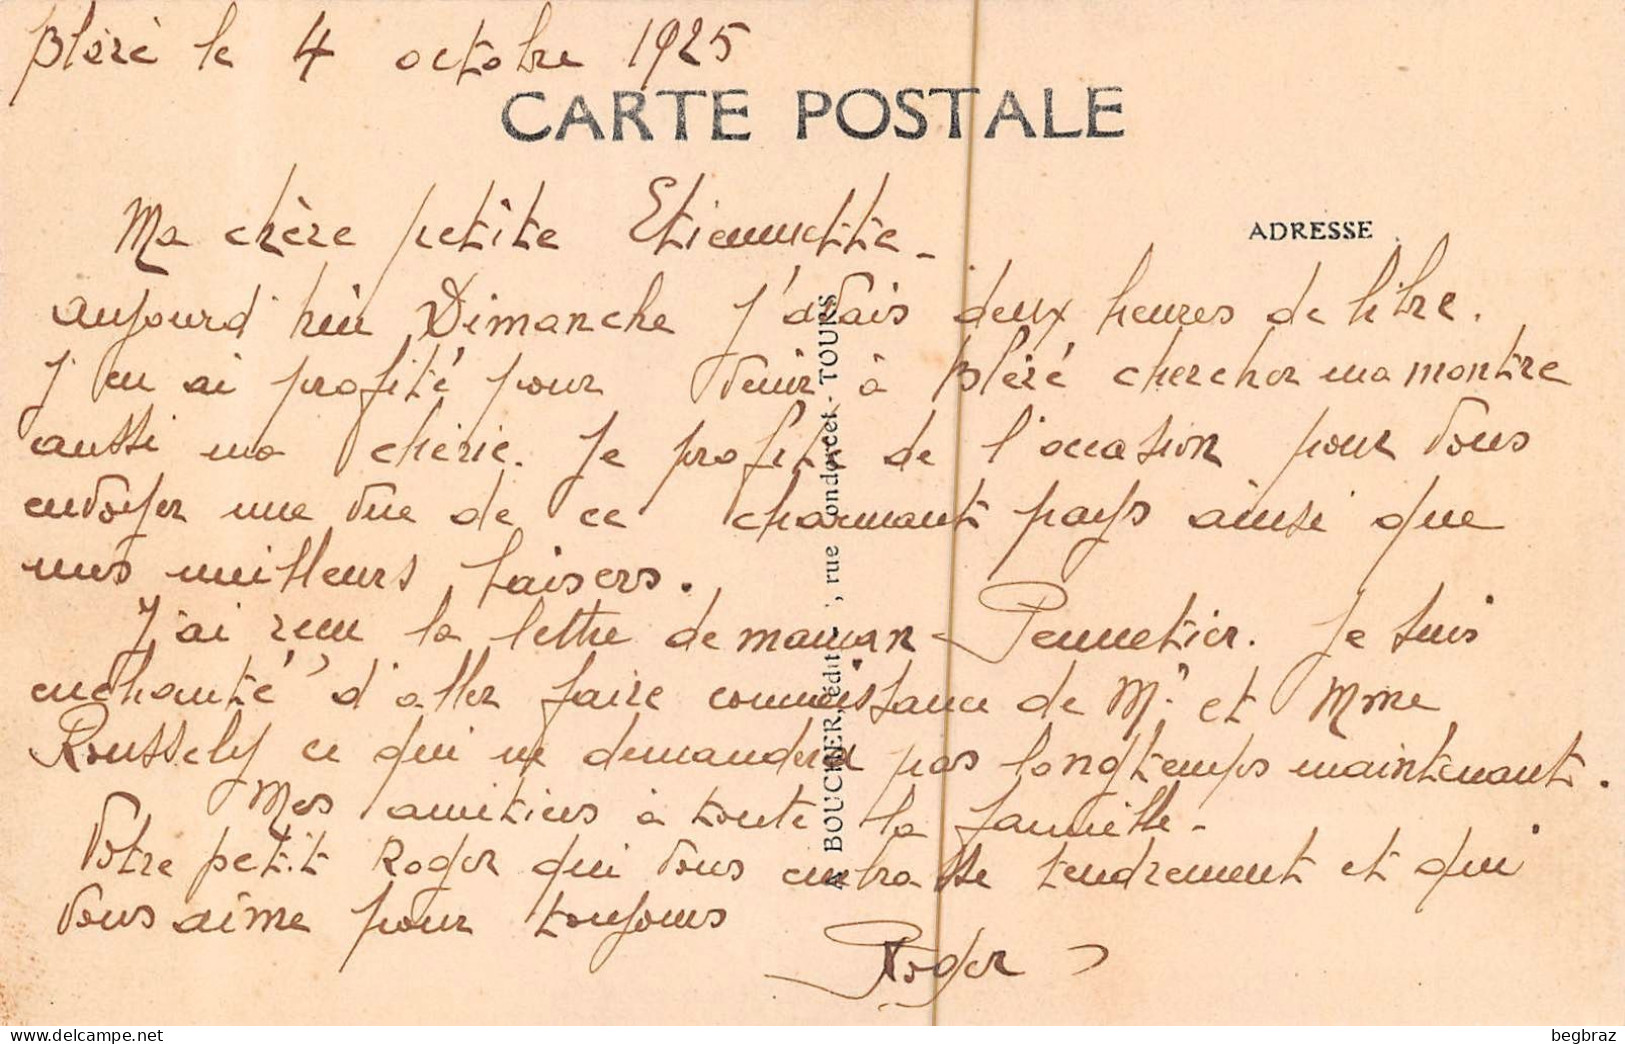 Bléré le 4 octobre 1925
CARTE POSTALE
ADRESSE
Ma chère petite Etiennette -
aujourd'hui Dimanche j'avais deux heures de libre.
J'en ai profité pour venir à Bléré chercher ma montre
aussi ma chérie. Je profite de l'occasion pour vous
envoyer une vue de ce charmant pays ainsi que
mes meilleurs baisers.
J'ai reçu la lettre de maman Pennetier. Je suis
enchanté d'aller faire connaissance de Mr et Mme
Roussely ce qui ne demandera pas longtemps maintenant.
Mes amitiés à toute la famille -
Votre petit Roger qui vous embrasse tendrement et qui
vous aime pour toujours
Roger
A. BOUCHER, édit , rue ondorcet - TOURS
begbraz